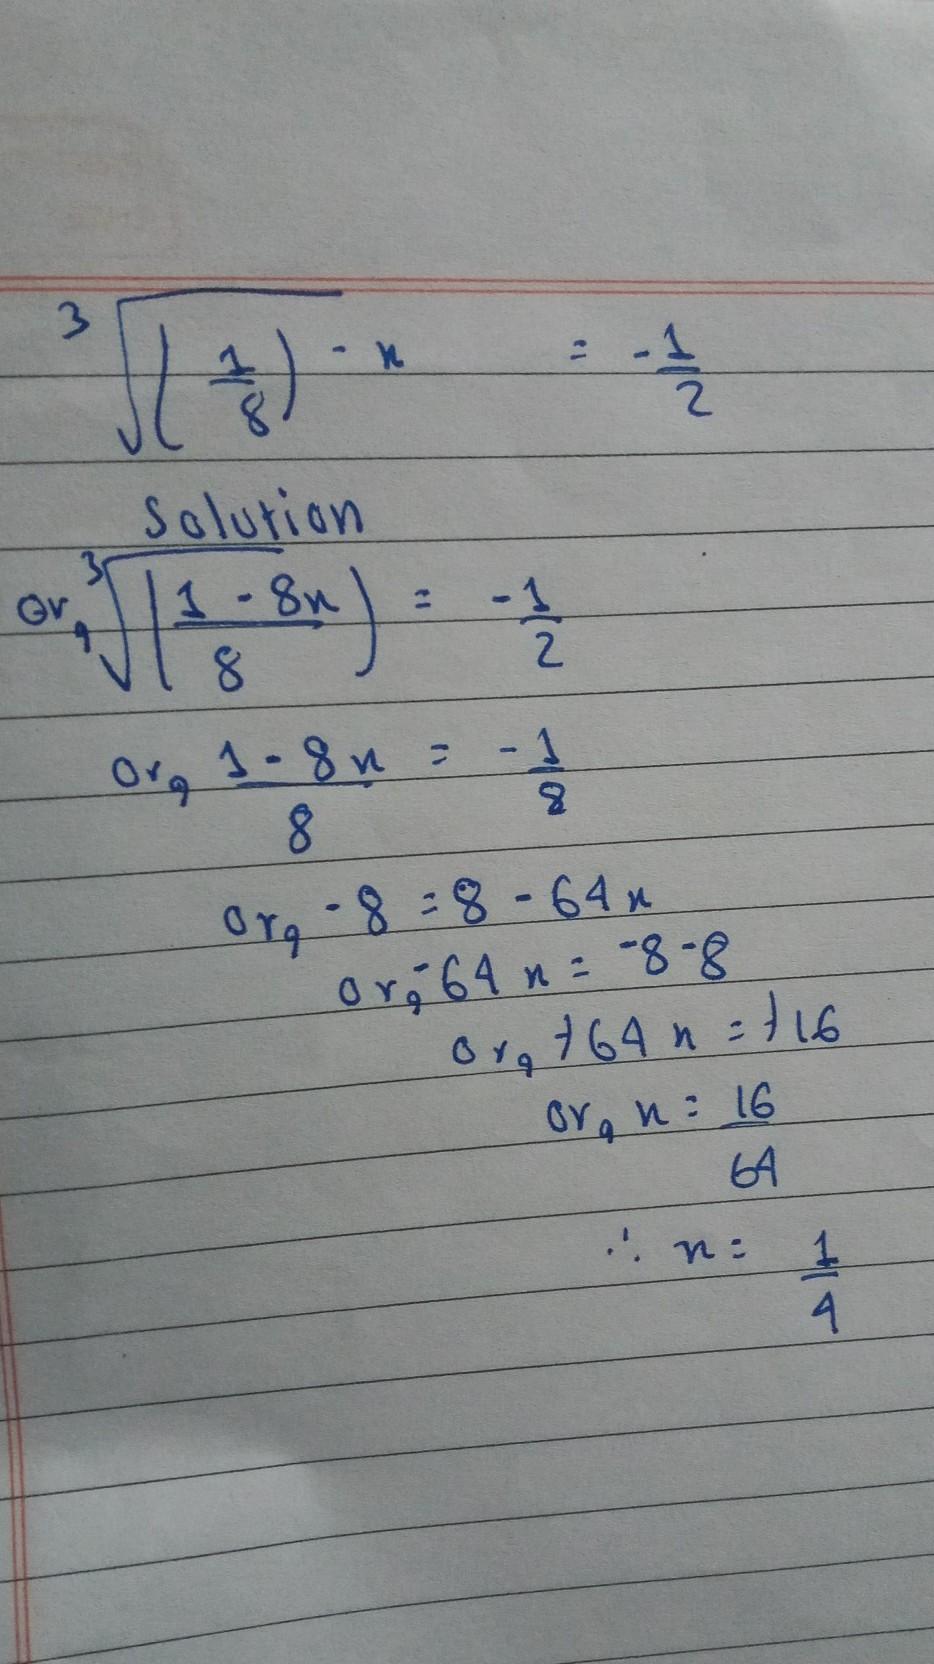 3√(1/8) - x = -1/2
Solution
Or, 3√(1-8x/8) = -1/2
Or, 1-8x/8 = -1/8
Or, -8 = 8 - 64x
Or, -64x = -8-8
Or, +64x = +16
Or, x = 16/64
∴ x = 1/4